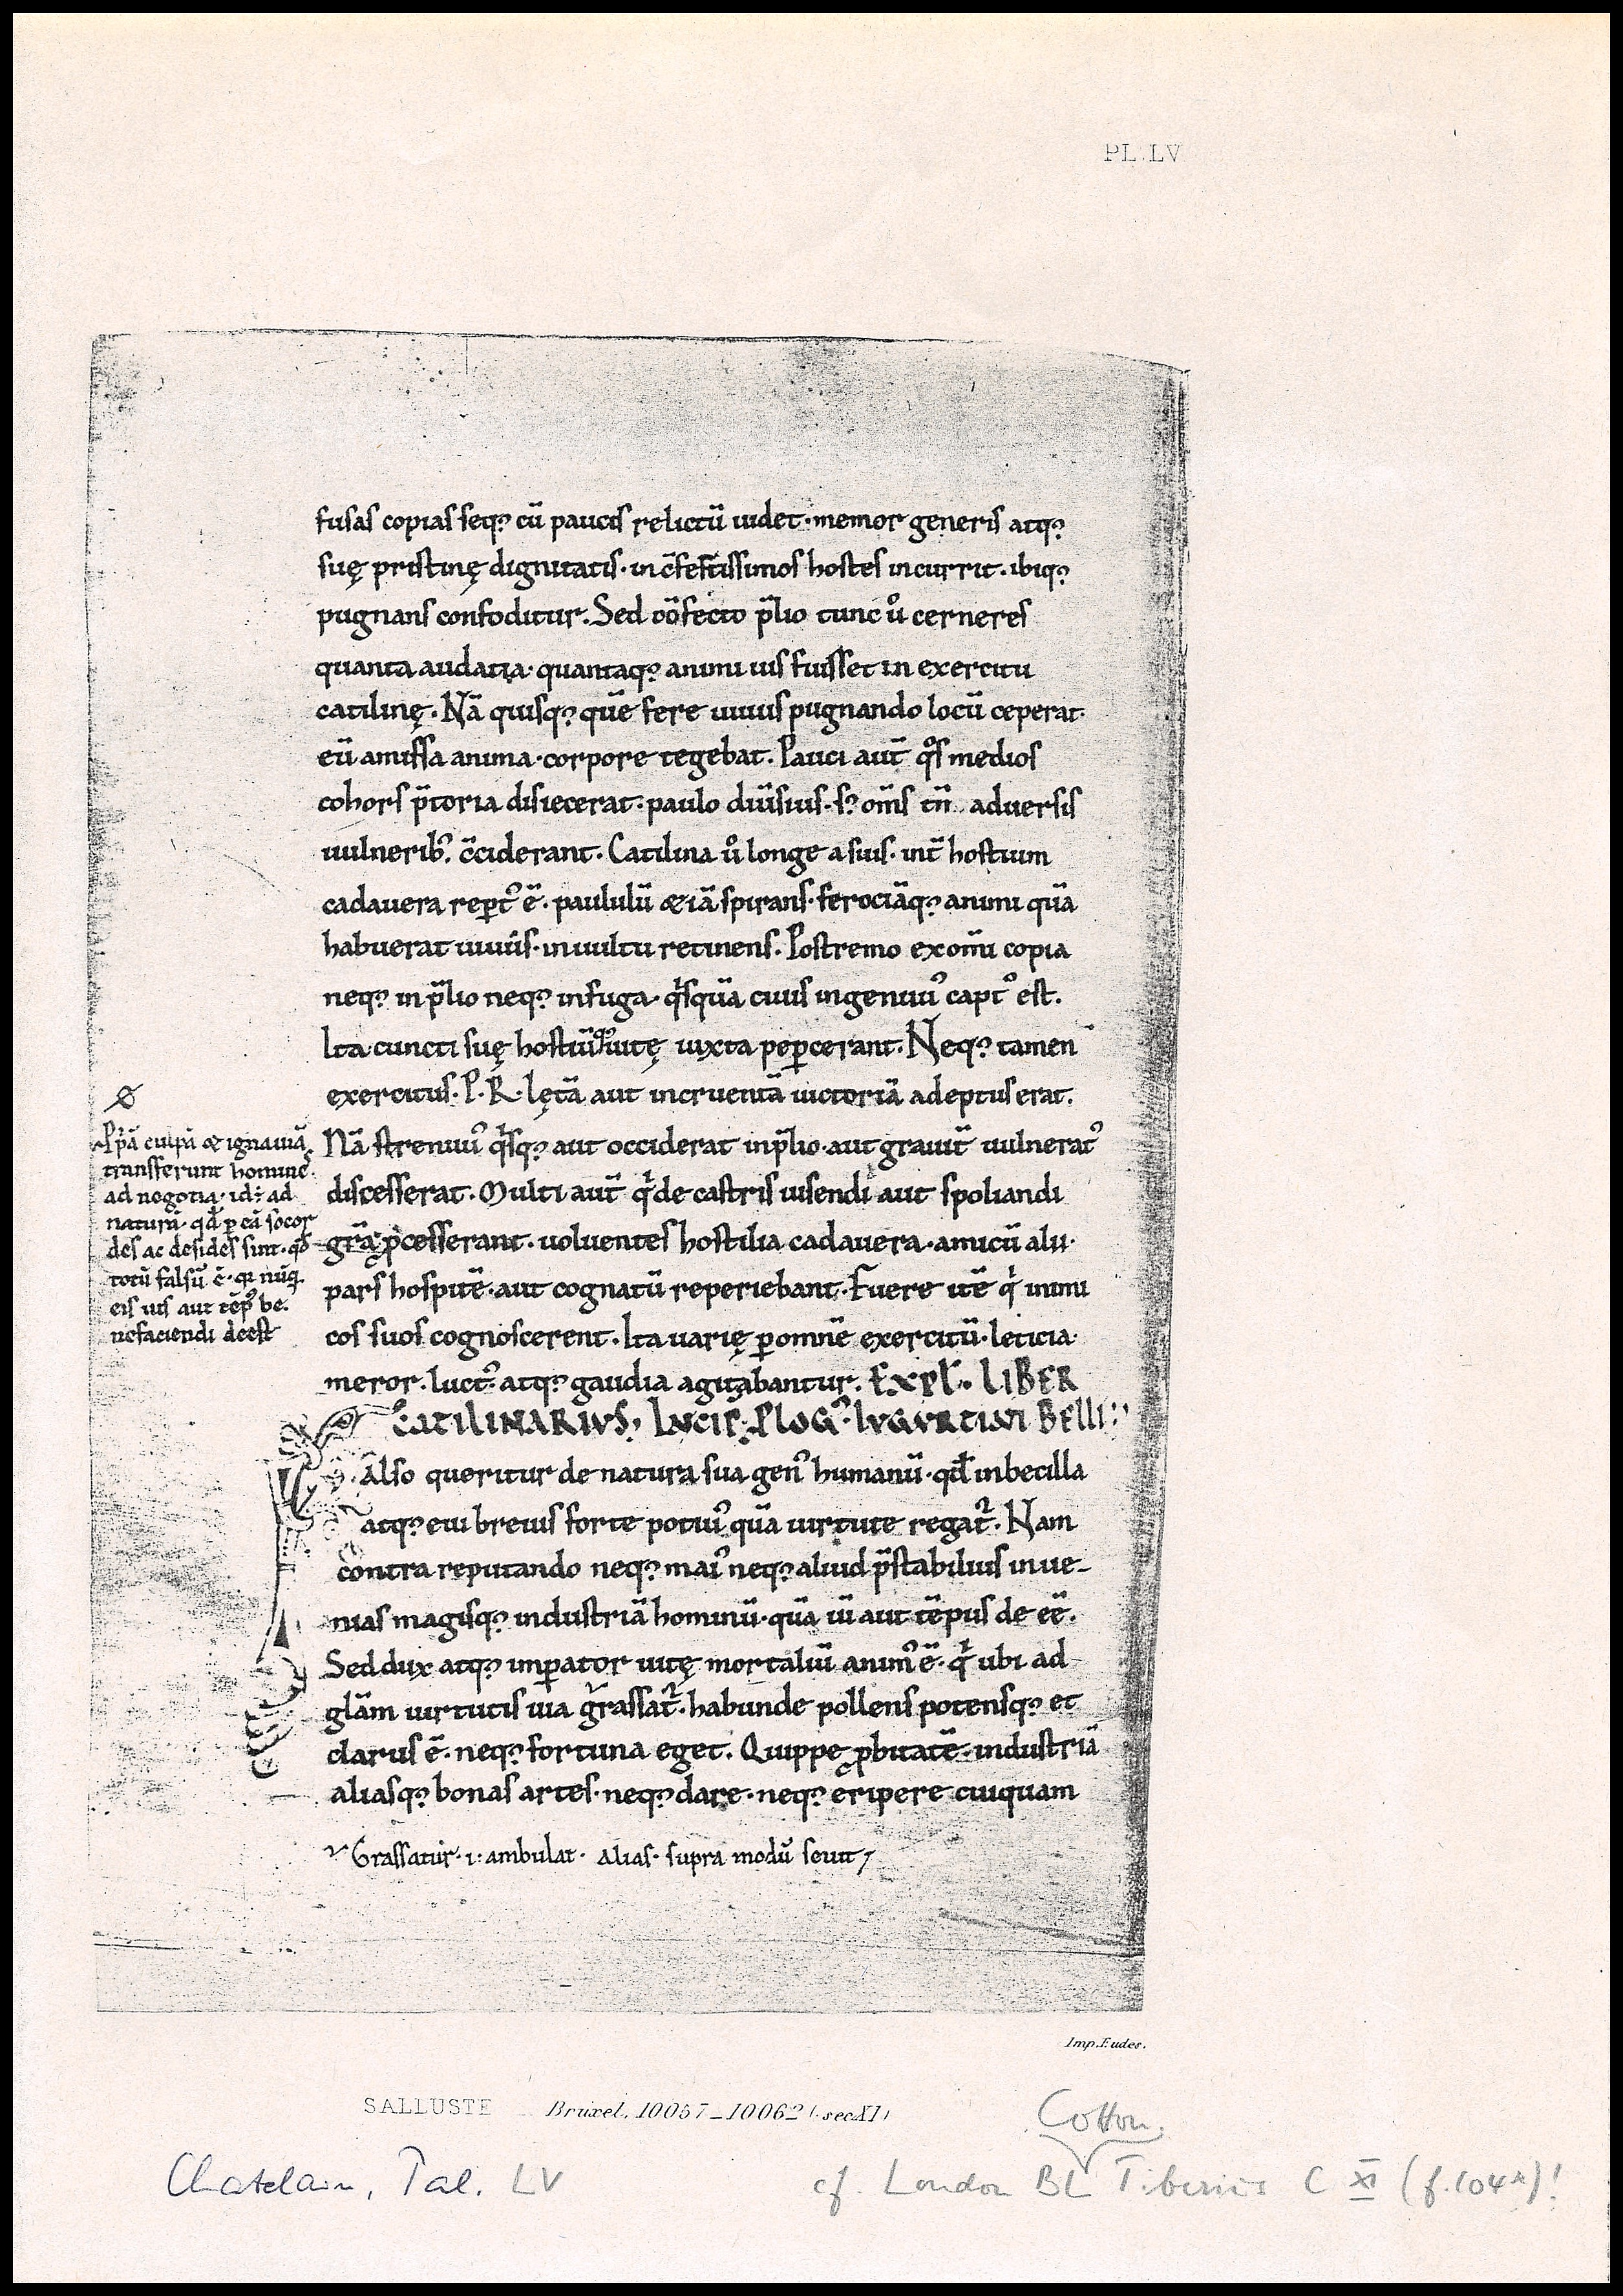 PL. LV
fusas copias seq; cū paucis relictū uidet · memor generis atq;
suę pristinę dignitatis · in c̄fertissimos hostes incurrit · ibiq;
pugnans confoditur. Sed cōfecto p̄lio tunc uͦ cerneres
quanta audatia · quantaq; animi uis fuisset in exercitu
catilinę. Nā quisq; quē fere uiuus pugnando locū ceperat·
eū amissa anima · corpore tegebat. Pauci aut̄ qͦs medios
cohors p̄toria disiecerat · paulo diuīsius · s; om̄s tn̄ aduersis
uulnerib; c̄ciderant. Catilina uͦ longe a suis · int̄ hostium
cadauera rep̱tꝰ ē · paululū &iā spirans · ferociāq; animi quā
habuerat uiuus · in uultu retinens. Postremo ex om̄i copia
neq; in p̄lio neq; in fuga · qͥsquā ciuis ingenuuꝰ captꝰ est.
Ita cuncti suę hostiūq; uitę iuxta pep̱cerant. Neq; tamen
exercitus · P · R · lętā aut incruentā uictoriā adeptus erat.
Nā strenuuꝰ qͥsq; aut occiderat in p̄lio · aut grauit̄ uulneratꝰ
discesserat. Multi aut̄ qͥ de castris uisendi aut spoliandi
grā ꝓcesserant · uoluentes hostilia cadauera · amicū alii·
pars hospitē · aut cognatū reperiebant. Fuere itē qͥ inimi
cos suos cognoscerent. Ita uarię ꝑ omnē exercitū · leticia·
meror · luctꝰ · atq; gaudia agitabantur. EXPL̄. LIBER
CATILINARIVS; INCIP̄. PLOGꝰ IVGVRTINI BELLI:
Also queritur de natura sua genꝰ humanū · qđ inbecilla
atq; eui breuis sorte potiuꝰ quā uirtute regat᷑. Nam
contra reputando neq; maiꝰ neq; aliud p̄stabilius inue-
nias magisq; industriā hominū · quā uī aut tēpus de eē.
Sed dux atq; imp̱ator uitę mortaliū animꝰ ē · qͥ ubi ad
glām uirtutis uia grassat᷑ · habunde pollens potensq; et
clarus ē · neq; fortuna eget. Quippe ꝓbitatē · industriā
aliasq; bonas artes · neq; dare · neq; eripere cuiquam
Grassatur · i · ambulat · alias · supra modū seuit
Ppͥā culpā & ignauiā
transferunt hominē
ad negotia · id ÷ ad
naturā · qđ ꝑ eā socor
des ac desides sint · qđ
totū falsū ē · qͥ nūq̄
eis uis aut tēpꝰ be
nefaciendi deest
Imp. Eudes.
SALLUSTE Bruxel. 10057_10062 (sec. XI)
Cotton.
Chatelain, Pal. LV cf. London BL Tiberius C XI (f. 104ʳ)!